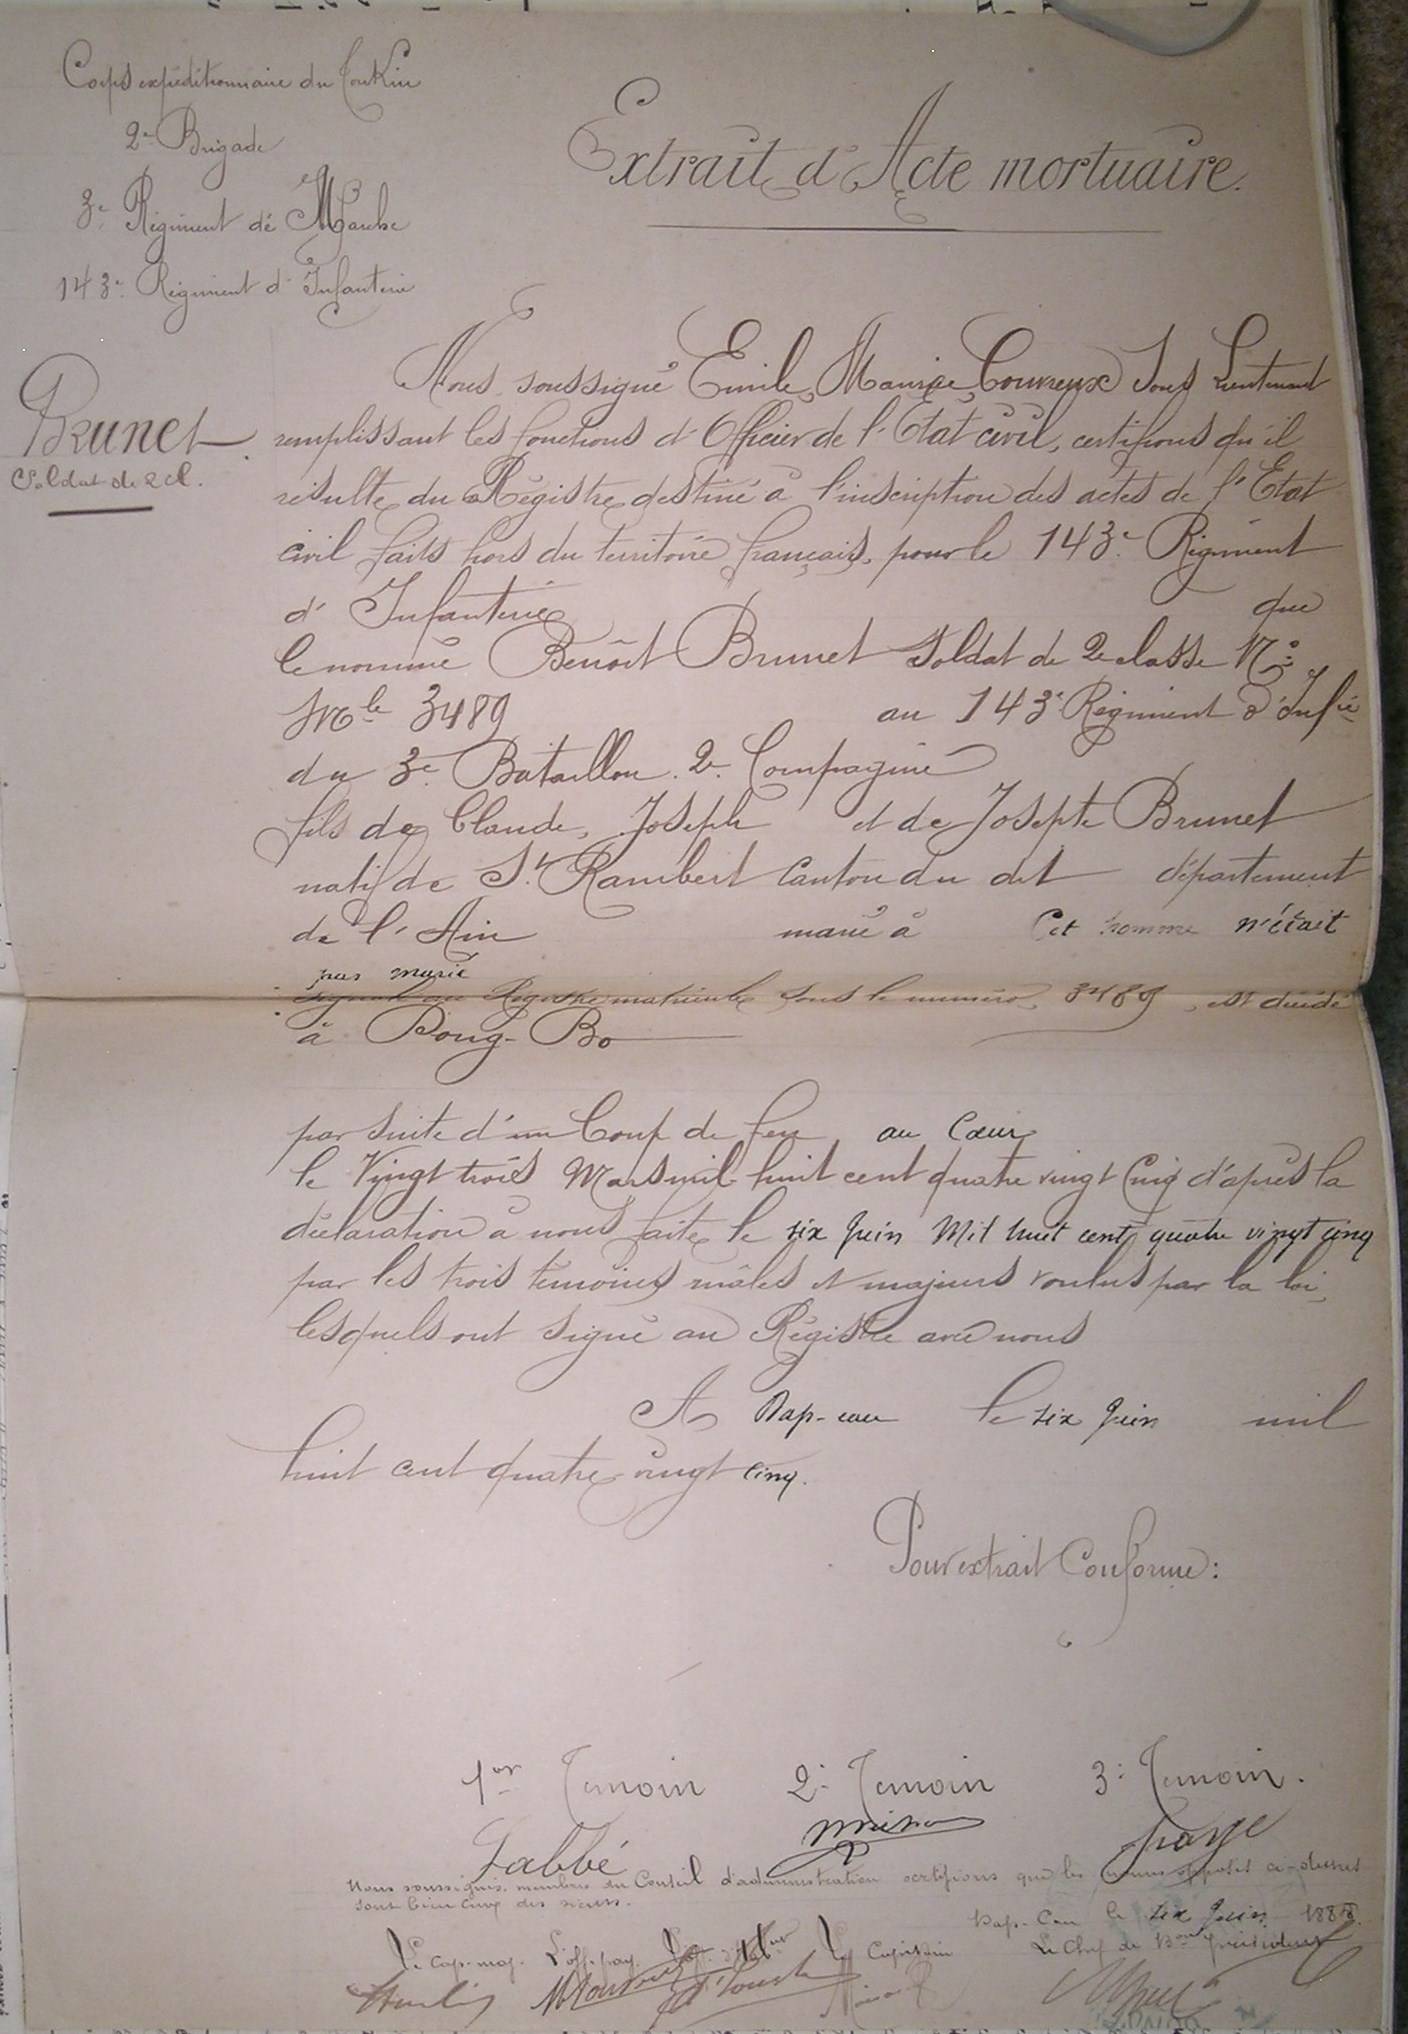 Corps expéditionnaire du Tonkin
2e Brigade
3e Régiment de Marche
143e Régiment d'Infanterie
Extrait d'Acte mortuaire.
Brunet
Soldat de 2 cl.
Nous soussigné Emile Maurice Couvreux Sous Lieutenant
remplissant les fonctions d'Officier de l'Etat civil, certifions qu'il
résulte du Régistre destiné à l'inscription des actes de l'Etat
civil faits hors du territoire français, pour le 143e Régiment
d'Infanterie que
le nommé Benoit Brunet Soldat de 2e classe No
Mle 3489 au 143e Régiment d'Infie
du 3e Bataillon 2e Compagnie
fils de Claude, Joseph et de Josepte Brunet
natif de St Rambert Canton du dit département
de l'Ain marié à Cet homme n'était
pas marié
Registre matricule sous le numéro 3489, est décédé
à Dong-Bo
par suite d'un Coup de feu au Cœur
le Vingt trois Mars mil huit cent quatre vingt Cinq d'après la
déclaration à nous faite le six Juin Mil huit cent quatre vingt cinq
par les trois témoins mâles et majeurs voulus par la loi,
lesquels ont signé au Régistre avec nous
A Dap-cau le six Juin mil
huit cent quatre vingt cinq.
Pour extrait Conforme:
1er Temoin 2e Temoin 3e Temoin.
Labbé
Nous soussignés, membres du Conseil d'administration certifions que les ci-dessus
sont bien ceux des
Dap-Cau le six Juin 188
Le Cap-maj. L'off-pay. Le Capitain Le Chef de Bon président